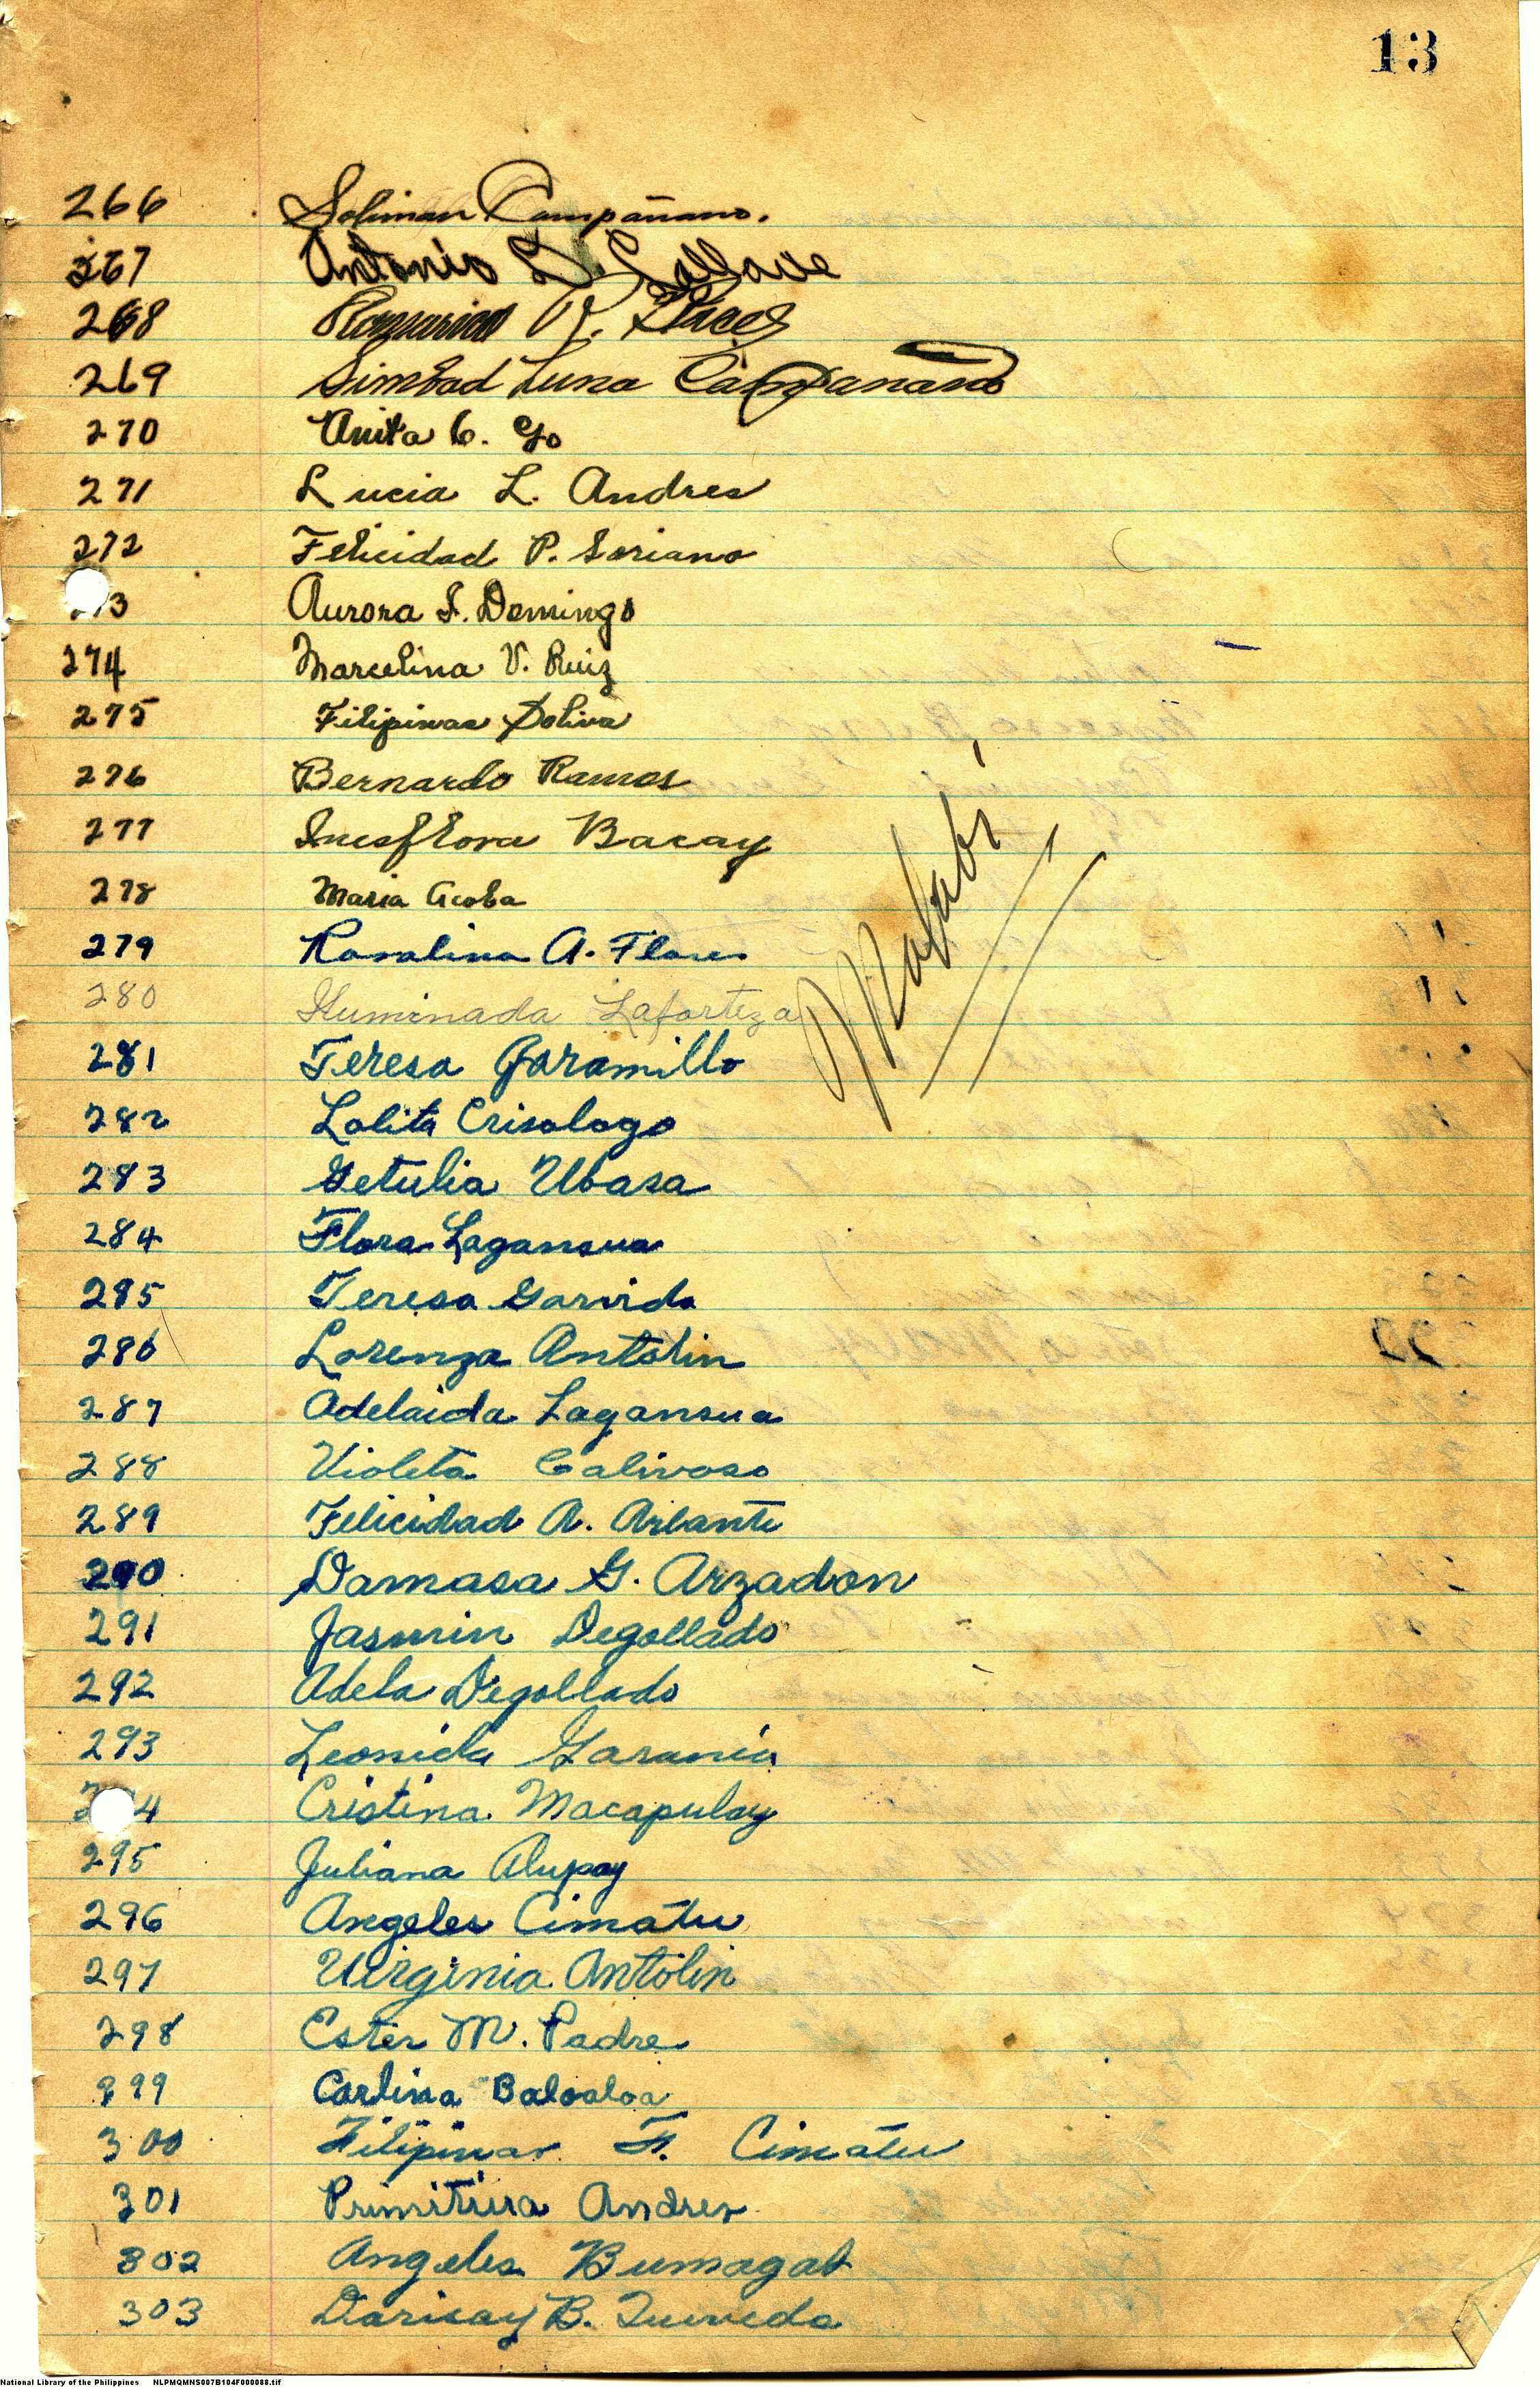 13
266 Soliman Campañano.
267 Antonio D.
268 R.
269 Simbad Luna Campañano
270 Anita C. Go
271 Lucia L. Andres
272 Felicidad P. Soriano
3 Aurora S. Domingo
274 Marcelina V. Ruiz
275 Filipinas Soliva
276 Bernardo Ramos
277 Inesflora Bacay
278 Maria Acoba
279 Rosalina A. Flores
280 Iluminada Laforteza
281 Teresa Jaramillo
282 Lolita Crisologo
283 Getulia Ubasa
284 Flora Lagansua
285 Teresa Garvida
286 Lorenza Antolin
287 Adelaida Lagansua
288 Violeta Calivoso
289 Felicidad A. Arlante
290 Damasa G. Arzadon
291 Jasmin Degollado
292 Adela Degollado
293 Leonida Garania
2 4 Cristina Macapulay
295 Juliana Alupay
296 Angeles Cimatu
297 Virginia Antolin
298 Ester M. Padre
299 Carlina Baloaloa
300 Filipinas F. Cimatu
301 Primitiva Andres
302 Angeles Bumagat
303 Darisay B. Quevedo
National Library of the Philippines NLPMQMNS007B104F000088.tif